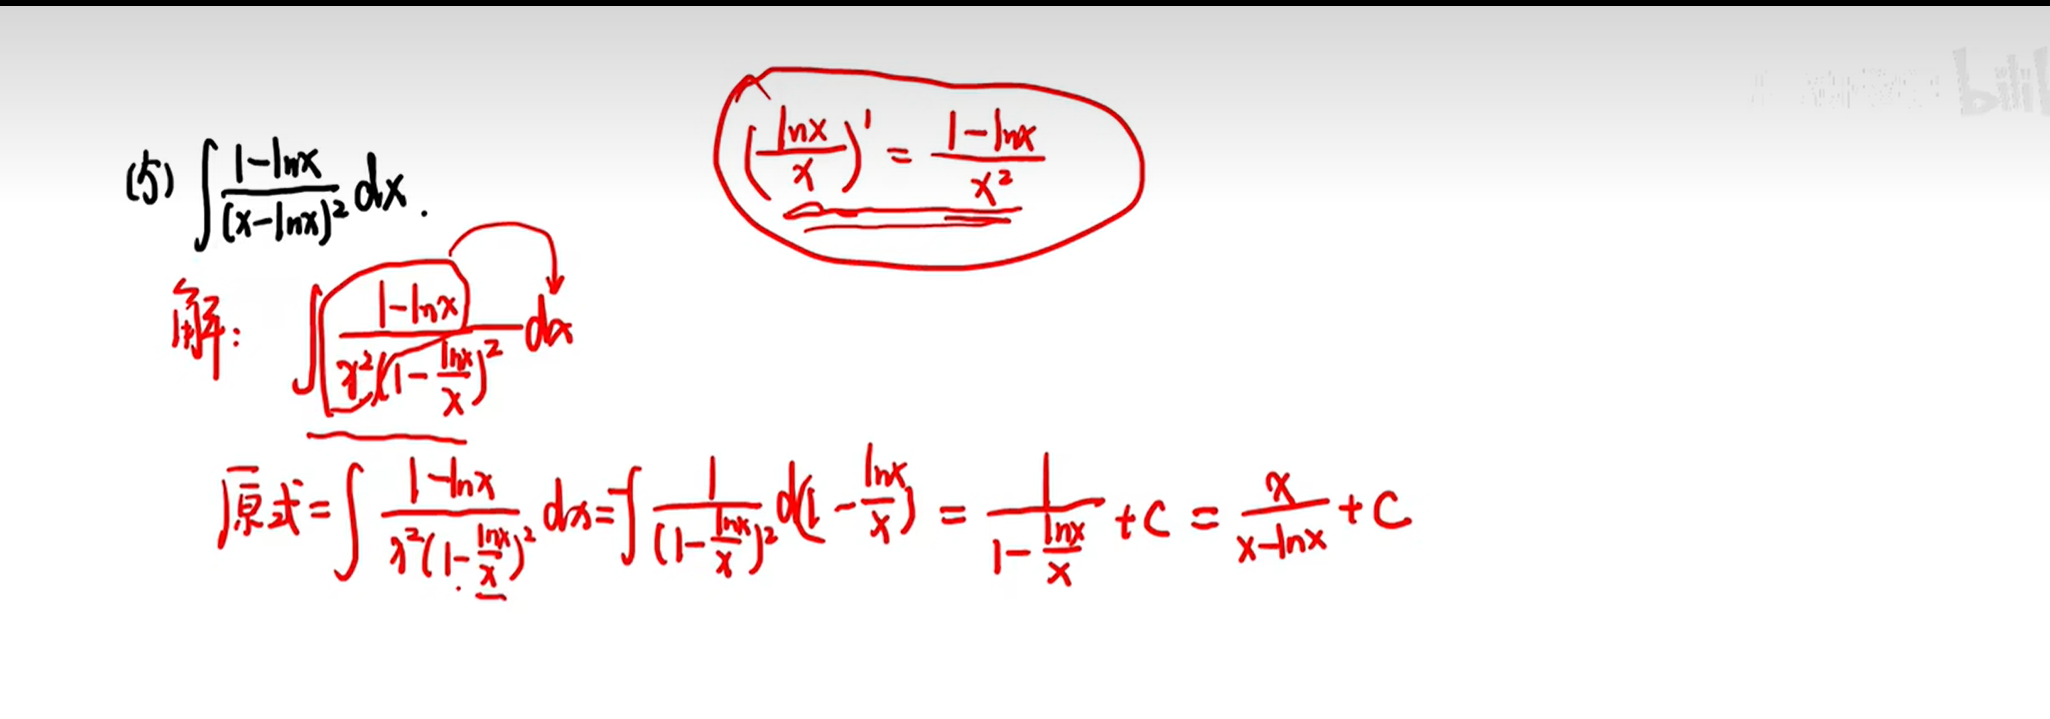 (5) ∫ (1-lnx)/(x-lnx)² dx.
(lnx/x)' = (1-lnx)/x²
解: ∫ (1-lnx)/(x²(1-lnx/x)²) dx
原式=∫ (1-lnx)/(x²(1-lnx/x)²) dx=-∫ 1/(1-lnx/x)² d(1-lnx/x) = 1/(1-lnx/x) +C = x/(x-lnx) +C
bili